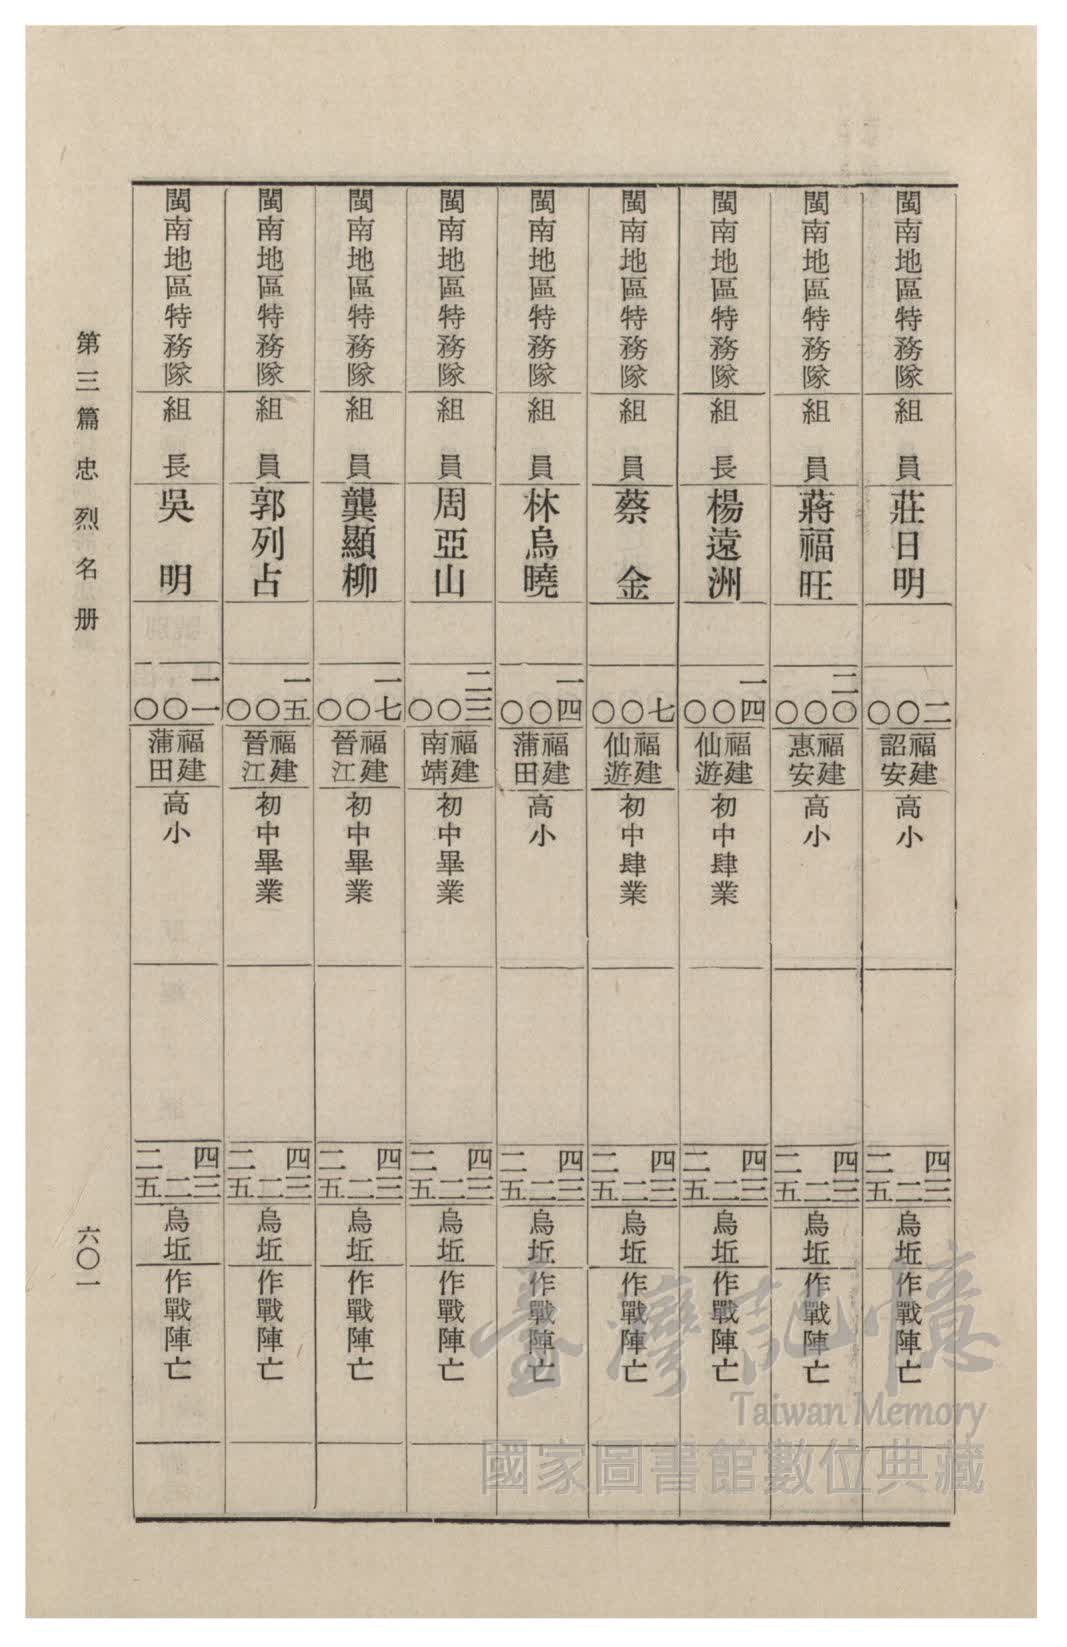 閩南地區特務隊 組員 莊日明 二 〇 〇 福建詔安 高小 四三 二 二五 烏坵 作戰陣亡
閩南地區特務隊 組員 蔣福旺 二〇 〇 〇 福建惠安 高小 四三 二 二五 烏坵 作戰陣亡
閩南地區特務隊 組長 楊遠洲 一四 〇 〇 福建仙遊 初中肆業 四三 二 二五 烏坵 作戰陣亡
閩南地區特務隊 組員 蔡金 七 〇 〇 福建仙遊 初中肆業 四三 二 二五 烏坵 作戰陣亡
閩南地區特務隊 組員 林烏曉 一四 〇 〇 福建蒲田 高小 四三 二 二五 烏坵 作戰陣亡
閩南地區特務隊 組員 周亞山 二三 〇 〇 福建南靖 初中畢業 四三 二 二五 烏坵 作戰陣亡
閩南地區特務隊 組員 龔顯柳 一七 〇 〇 福建晉江 初中畢業 四三 二 二五 烏坵 作戰陣亡
閩南地區特務隊 組員 郭列占 一五 〇 〇 福建晉江 初中畢業 四三 二 二五 烏坵 作戰陣亡
閩南地區特務隊 組長 吳明 一一 〇 〇 福建蒲田 高小 四三 二 二五 烏坵 作戰陣亡
第三篇 忠烈名册
六〇一
臺灣記憶
Taiwan Memory
國家圖書館數位典藏